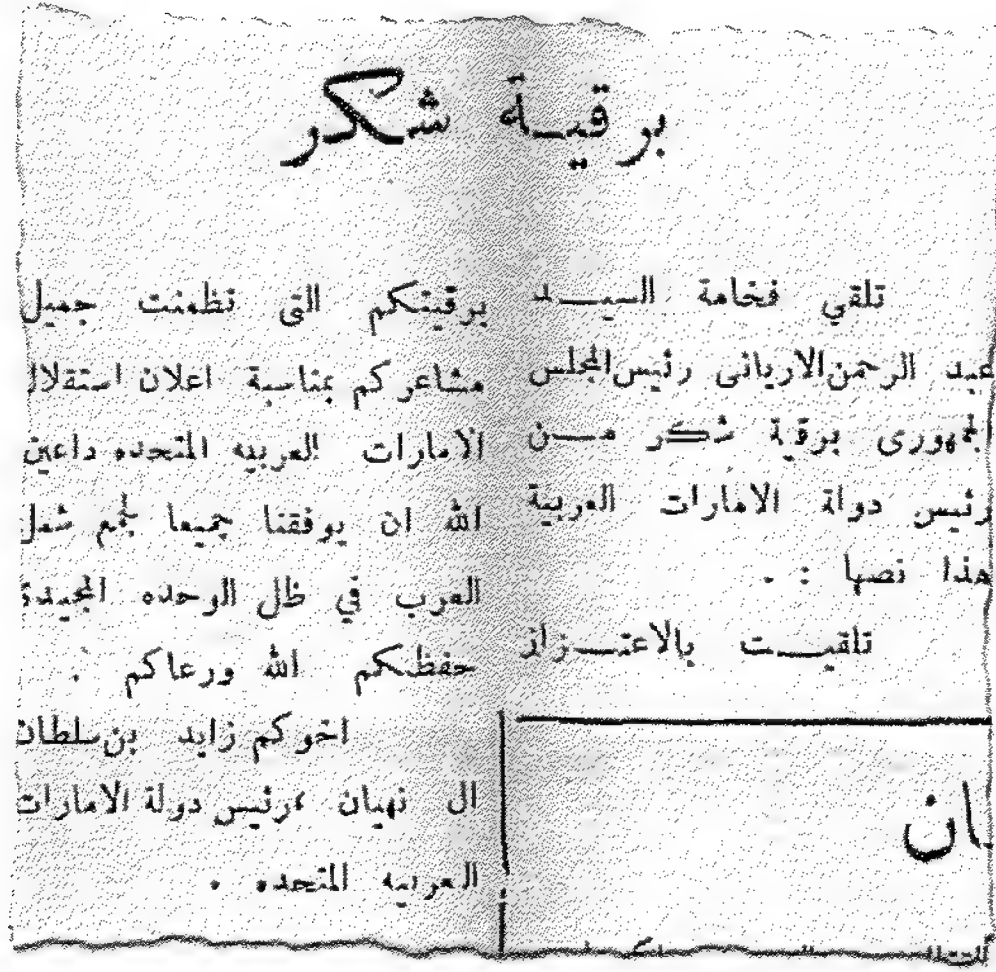 برقية شكر
تلقي فخامة السيد
عبد الرحمن الارياني رئيس المجلس
الجمهورى برقية شكر من
رئيس دولة الامارات العربية
هذا نصها : .
تلقيت بالاعتزاز
برقيتكم التى تظمنت جميل
مشاعركم بمناسبة اعلان استقلال
الامارات العربيه المتحده داعين
الله ان يوفقنا جميعا لجمع شمل
العرب في ظل الوحده المجيدة
حفظكم الله ورعاكم .
اخوكم زايد بن سلطان
ال نهيان ،رئيس دولة الامارات
العربيه المتحده .